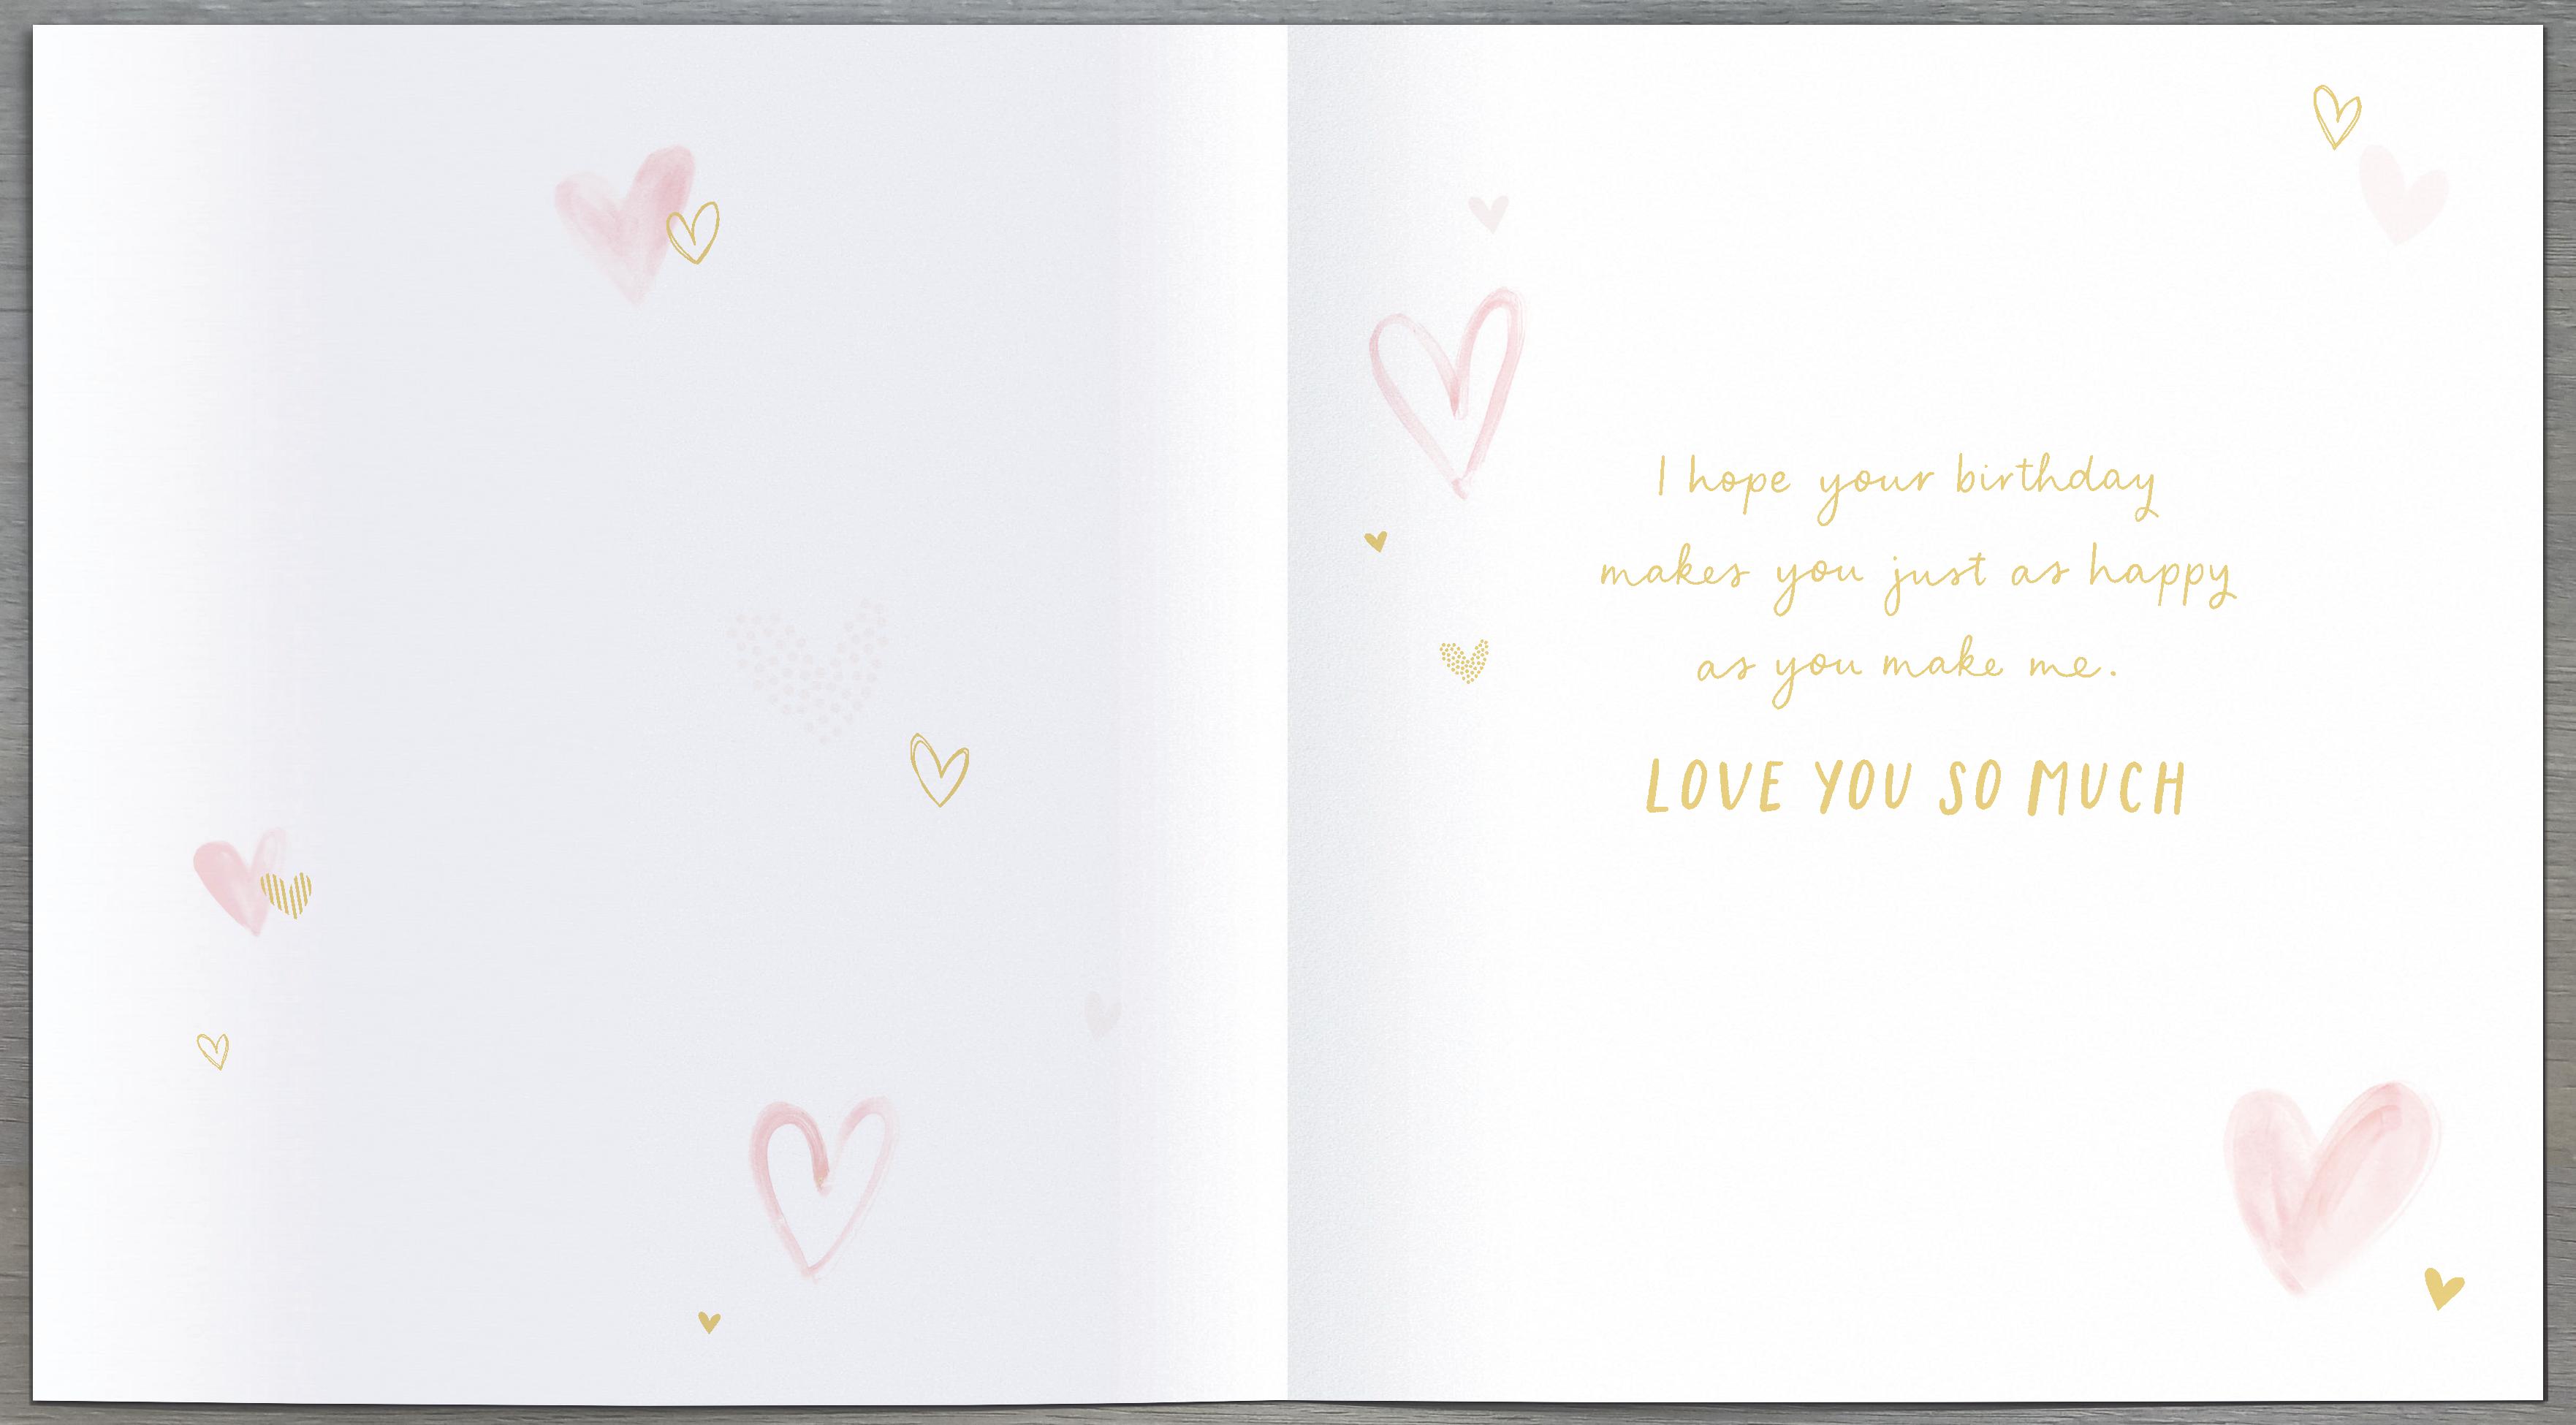 I hope your birthday
makes you just as happy
as you make me.
LOVE YOU SO MUCH